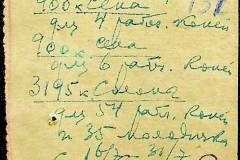 900 к Сена 131
для 4 рабч. Коней
900 к сена
для 6 рабч. Коней
3195 к Соломы
для 54 рабч. Коней
и 35 молодняка
16/7 31/7